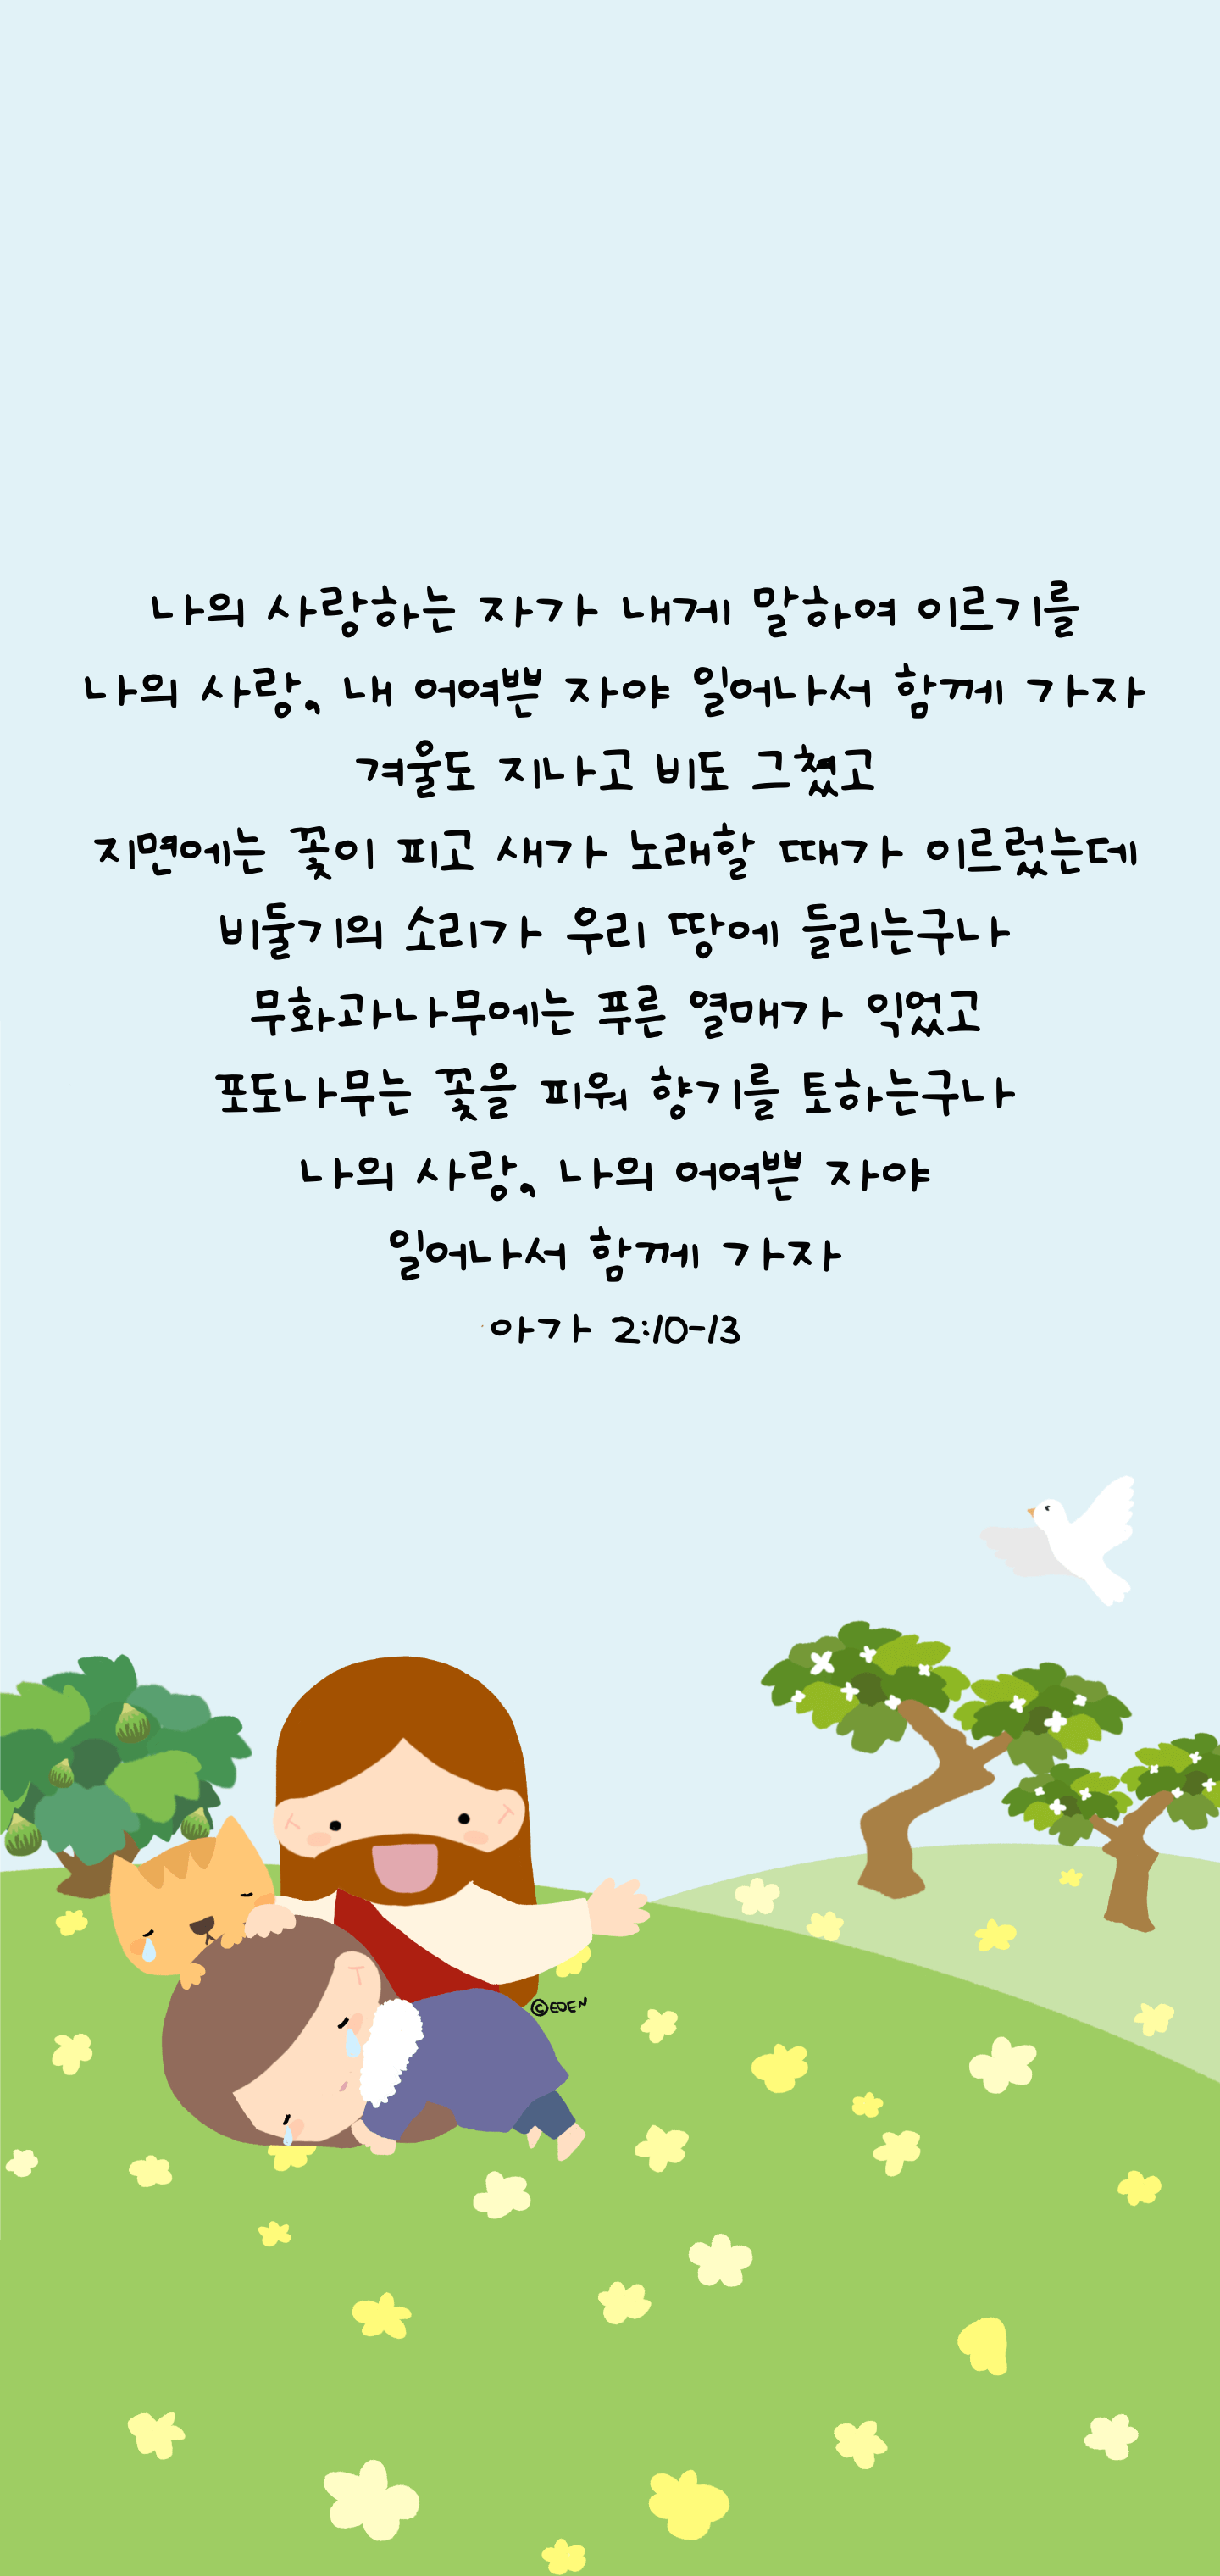 나의 사랑하는 자가 내게 말하여 이르기를
나의 사랑, 내 어여쁜 자야 일어나서 함께 가자
겨울도 지나고 비도 그쳤고
지면에는 꽃이 피고 새가 노래할 때가 이르렀는데
비둘기의 소리가 우리 땅에 들리는구나
무화과나무에는 푸른 열매가 익었고
포도나무는 꽃을 피워 향기를 토하는구나
나의 사랑, 나의 어여쁜 자야
일어나서 함께 가자
아가 2:10-13
©EDEN